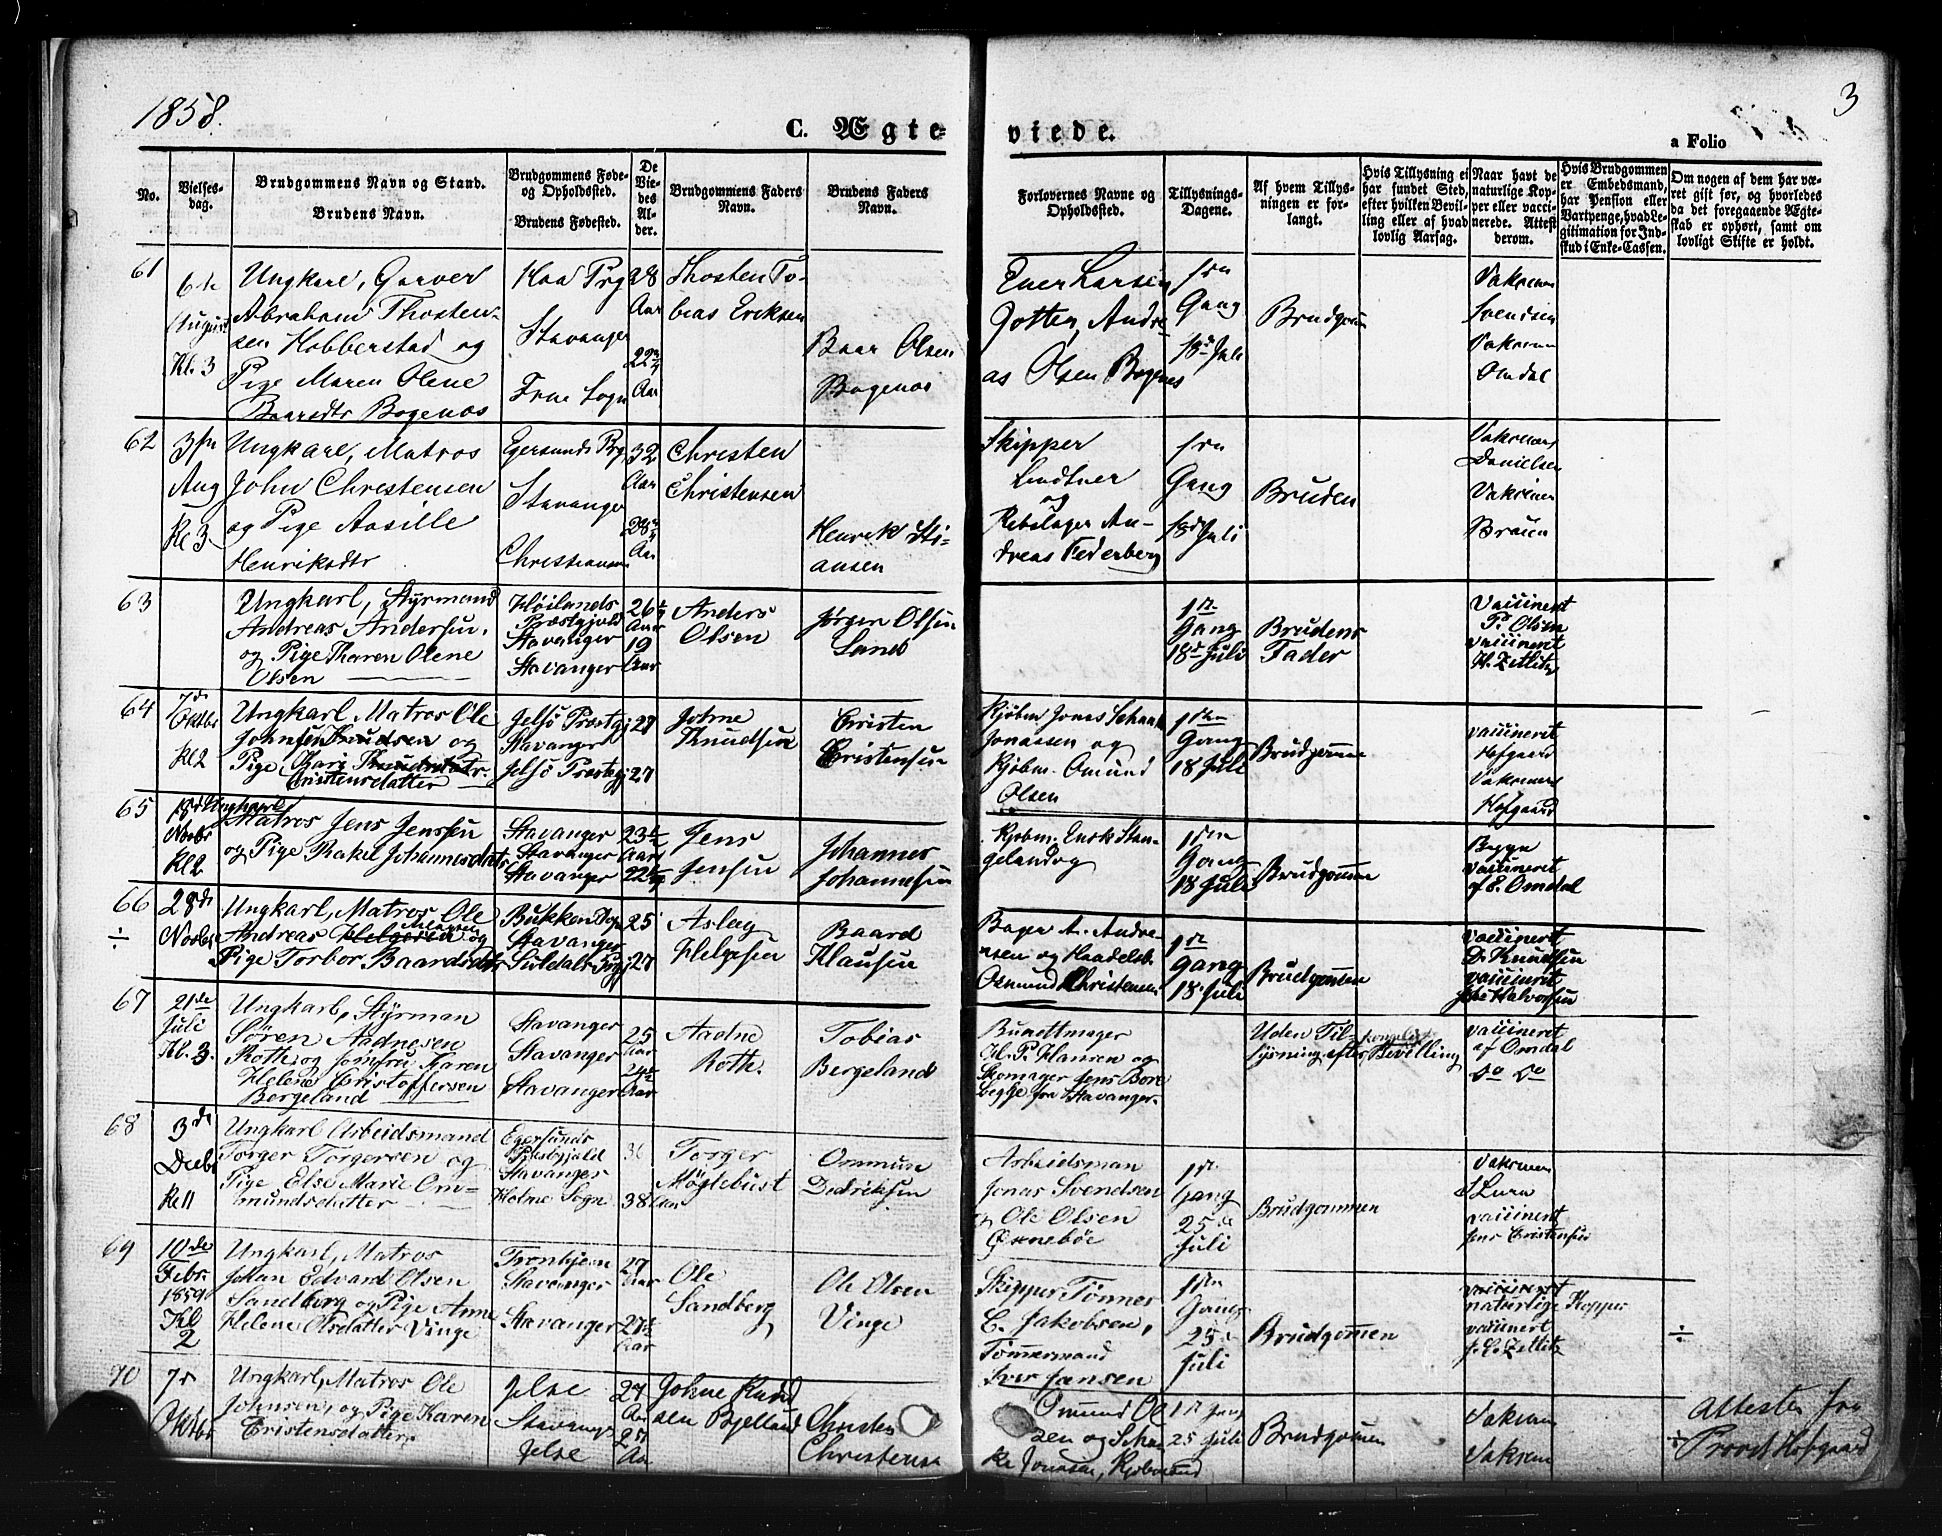 1858.
3
C. Ægteviede.
a Folio
No.
Vielsesdag.
Brudgommens Navn og Stand.
Brudens Navn.
Brudgommens Føde- og Opholdssted.
Brudens Fødested.
De Viedes Alder.
Brudgommens Faders Navn.
Brudens Faders Navn.
Forlovernes Navne og Opholdssted.
Tillysnings-Dagene.
Af hvem Tillysningen er forlangt.
Hvis Tillysning ei har fundet Sted, efter hvilken Bevilling eller af hvad lovlig Aarsag.
Naar havt de naturlige Kopper eller vaccinerede. Attest derom.
Hvis Brudgommen er Embedsmand, har Pension eller Vartpenge, hvad Legitimation for Indskud i Enke-Cassen.
Om nogen af dem har været gift før, og hvorledes da det foregaaende Ægteskab er ophørt, samt om lovligt Skifte er holdt.
61
6te August Kl. 3
Ungkarl, Garver
Abraham Thostensen Hobberstad og
Pige Maren Olene
Baardtr Bogenæs
Haa Prg
Stavanger
28 Aar
22 3/4 Aar
Thosten Tobias Ericksen
Baar Olsen
Bogenæs
Ener Larsen
Jotten, Andreas Olsen Bogenes
Gang
18de Juli
Brudgom
Svendsen
Omdal
62
Aug Kl 3
Ungkarl, Matros
John Christensen
og Pige Aasille
Henriksdtr
Egersunds Prg
Stavanger
32 Aar
28 3/4 Aar
Christen
Christensen
Henrik Stiansen
Skipper
Lindtner
og
Rebslager Andreas Federberg
Gang
18de Juli
Bruden
Danielsen
63
Ungkarl, Styrmand
Andreas Andersen
og Pige Tharen Olene
Olsen
Høilands
Præstgjeld
Stavanger
Stavanger
26 Aar
19 Aar
Anders
Olsen
Jørgen Olsen
Gang
18de Juli
Brudens
Fader
vaccineret
P. Olsen
vaccineret
H. Zetlitz
64
7de Oktbr Kl 2
Ungkarl Matros Ole
Johnsen Knudsen og
Pige Kari
Cristensdatter
Jelsø Præstgj
Stavanger
Jelsø Præstgj
27
27
Johne
Knudsen
Cristen
Cristensen
Kjøbm. Jonas Schanke
Jonassen og
Kjøbm. Omund
Olsen
Gang
18 Juli
Brudgomme
vaccineret
Hofgaard
Hofgaard
65
18de Novbr Kl 2
Ungkarl
Matros Jens Jenssen
og Pige Rakel Johannesdatr
Stavanger
Stavanger
Stavanger
23 Aar
22
Jens
Jensen
Johannes
Johannesen
Kjøbm. Enok Stangeland og
Gang
18 Juli
Brudgomme
vaccineret
af E. Omdal
66
÷
28de Novbr
Ungkarl, Matros Ole
Andreas Helgesen og
Pige Torbor Baardsdatr
Stavanger
Suldals Prgj
25
27
Aslag
Helgesen
Baard
Klausen
Bager A. Andreasen og Haadelsb.
Osmund Christensen
Gang
18 Juli
Brudgommen
vaccineret
D. Knudsen
vaccineret
Halvorsen
67
21de Juli Kl. 3.
Ungkarl, Styrman
Søren Aadnesen
Roth, og Jomfru Karen
Helene Cristoffersen
Bergeland
Stavanger
Stavanger
Stavanger
25 Aar
24 Aar
Aadne
Roth.
Tobias
Bergeland
Bundtmager
H. P. Hansen og
Skomager Jens Bore
begge fra Stavanger.
Uden Tillysning, efter kongelig Bevilling
vaccineret
af Omdal
do do
68
3de Decbr Kl 11
Ungkarl Arbeidsmand
Torger Torgersen og
Pige Else Marie Ommundsdatter
Egersunds
Præstgjeld
Stavanger
Holme Sogn
36
38 Aar
Torger
Møglebust
Ommun
Dedriksen
Arbeidsman
Jonas Svendsen
og Ole Olsen
Ørnebøe
Gang
25de
Juli
Brudgommen
S. Lura
vaccineret
Jens Cristensen
69
10de Febr. 1859 Kl 2
Ungkarl, Matros
Johan Edvard Olsen
Sandberg og Pige Anne
Helene Olsdatter Vinge
Tronhjem
Stavanger
Stavanger
27 Aar
27 Aar
Ole
Sandberg
Ole Olsen
Vinge
Skipper Tønnes
C. Jakobsen,
Tømmermand
Iver Jansen
Gang
25
Juli
Brudgommen
vaccineret
naturlige Kopper
vaccineret
Zetlitz
÷
70
7de Oktbr
Ungkarl, Matros Ole
Johnsen, og Pige Karen
Cristensdatter
Jelse
Stavanger
Jelse
27 Aar
27 Aar
Johne Knudsen Bjelland
Christen
Christensen
Omund Olsen og Schanke Jonasen, Kjøbmænd
Gang
25 Juli
Brudgommen
Attester fra
Provst Hofgaard